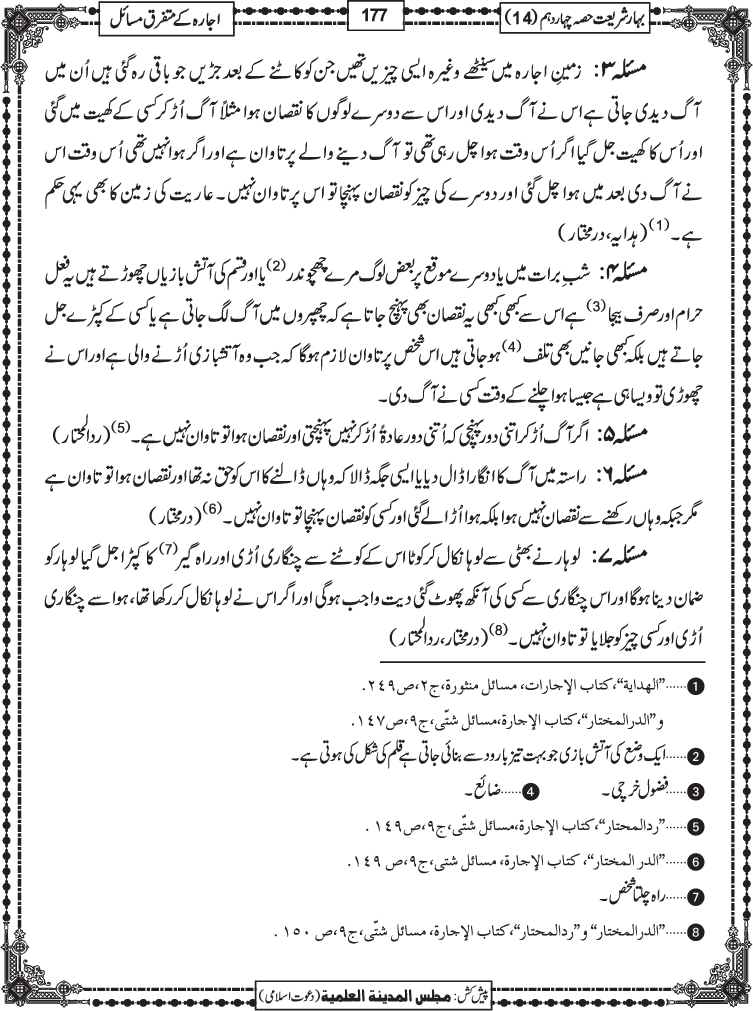 بہار شریعت حصہ چہاردہم (14)
177
اجارہ کے متفرق مسائل
مسئلہ ۳: زمینِ اجارہ میں سینٹھے وغیرہ ایسی چیزیں تھیں جن کو کاٹنے کے بعد جڑیں جو باقی رہ گئی ہیں اُن میں
آگ دیدی جاتی ہے اس نے آگ دیدی اور اس سے دوسرے لوگوں کا نقصان ہوا مثلاً آگ اُڑ کر کسی کے کھیت میں گئی
اور اُس کا کھیت جل گیا اگر اُس وقت ہوا چل رہی تھی تو آگ دینے والے پر تاوان ہے اور اگر ہوا نہیں تھی اُس وقت اس
نے آگ دی بعد میں ہوا چل گئی اور دوسرے کی چیز کو نقصان پہنچا تو اس پر تاوان نہیں۔ عاریت کی زمین کا بھی یہی حکم
ہے۔(1) (ہدایہ، درمختار)
مسئلہ ۴: شبِ برات میں یا دوسرے موقع پر بعض لوگ مرے چھچوندر(2) یا اور قسم کی آتش بازیاں چھوڑتے ہیں یہ فعل
حرام اور صرف بیجا(3) ہے اس سے کبھی کبھی یہ نقصان بھی پہنچ جاتا ہے کہ چھپروں میں آگ لگ جاتی ہے یا کسی کے کپڑے جل
جاتے ہیں بلکہ کبھی جانیں بھی تلف(4) ہو جاتی ہیں اس شخص پر تاوان لازم ہوگا کہ جب وہ آتشبازی اُڑنے والی ہے اور اس نے
چھوڑی تو ویسا ہی ہے جیسا ہوا چلنے کے وقت کسی نے آگ دی۔
مسئلہ ۵: اگر آگ اُڑ کر اتنی دور پہنچی کہ اُتنی دور عادۃً اُڑ کر نہیں پہنچتی اور نقصان ہوا تو تاوان نہیں ہے۔(5) (ردالمحتار)
مسئلہ ۶: راستہ میں آگ کا انگارا ڈال دیا یا ایسی جگہ ڈالا کہ وہاں ڈالنے کا اس کو حق نہ تھا اور نقصان ہوا تو تاوان ہے
مگر جبکہ وہاں رکھنے سے نقصان نہیں ہوا بلکہ ہوا اُڑا لے گئی اور کسی کو نقصان پہنچا تو تاوان نہیں۔(6) (درمختار)
مسئلہ ۷: لوہار نے بھٹی سے لوہا نکال کر کوٹا اس کے کوٹنے سے چنگاری اُڑی اور راہ گیر(7) کا کپڑا جل گیا لوہار کو
ضمان دینا ہوگا اور اس چنگاری سے کسی کی آنکھ پھوٹ گئی دیت واجب ہوگی اور اگر اس نے لوہا نکال کر رکھا تھا، ہوا سے چنگاری
اُڑی اور کسی چیز کو جلایا تو تاوان نہیں۔(8) (درمختار، ردالمحتار)
1 ......”الھدایة“، کتاب الإجارات، مسائل منثورة، ج۲، ص۲٤۹.
و ”الدرالمختار“، کتاب الإجارة، مسائل شتّی، ج۹، ص۱٤۷.
2 ......ایک وضع کی آتش بازی جو بہت تیز بارود سے بنائی جاتی ہے قلم کی شکل کی ہوتی ہے۔
3 ......فضول خرچی۔ 4 ......ضائع۔
5 ......”ردالمحتار“، کتاب الإجارة، مسائل شتّی، ج۹، ص۱٤۹.
6 ......”الدر المختار“، کتاب الإجارة، مسائل شتی، ج۹، ص ۱٤۹.
7 ......راہ چلتا شخص۔
8 ......”الدرالمختار“ و ”ردالمحتار“، کتاب الإجارة، مسائل شتّی، ج۹، ص ۱۵۰.
پیش کش: مجلس المدینة العلمیة (دعوت اسلامی)